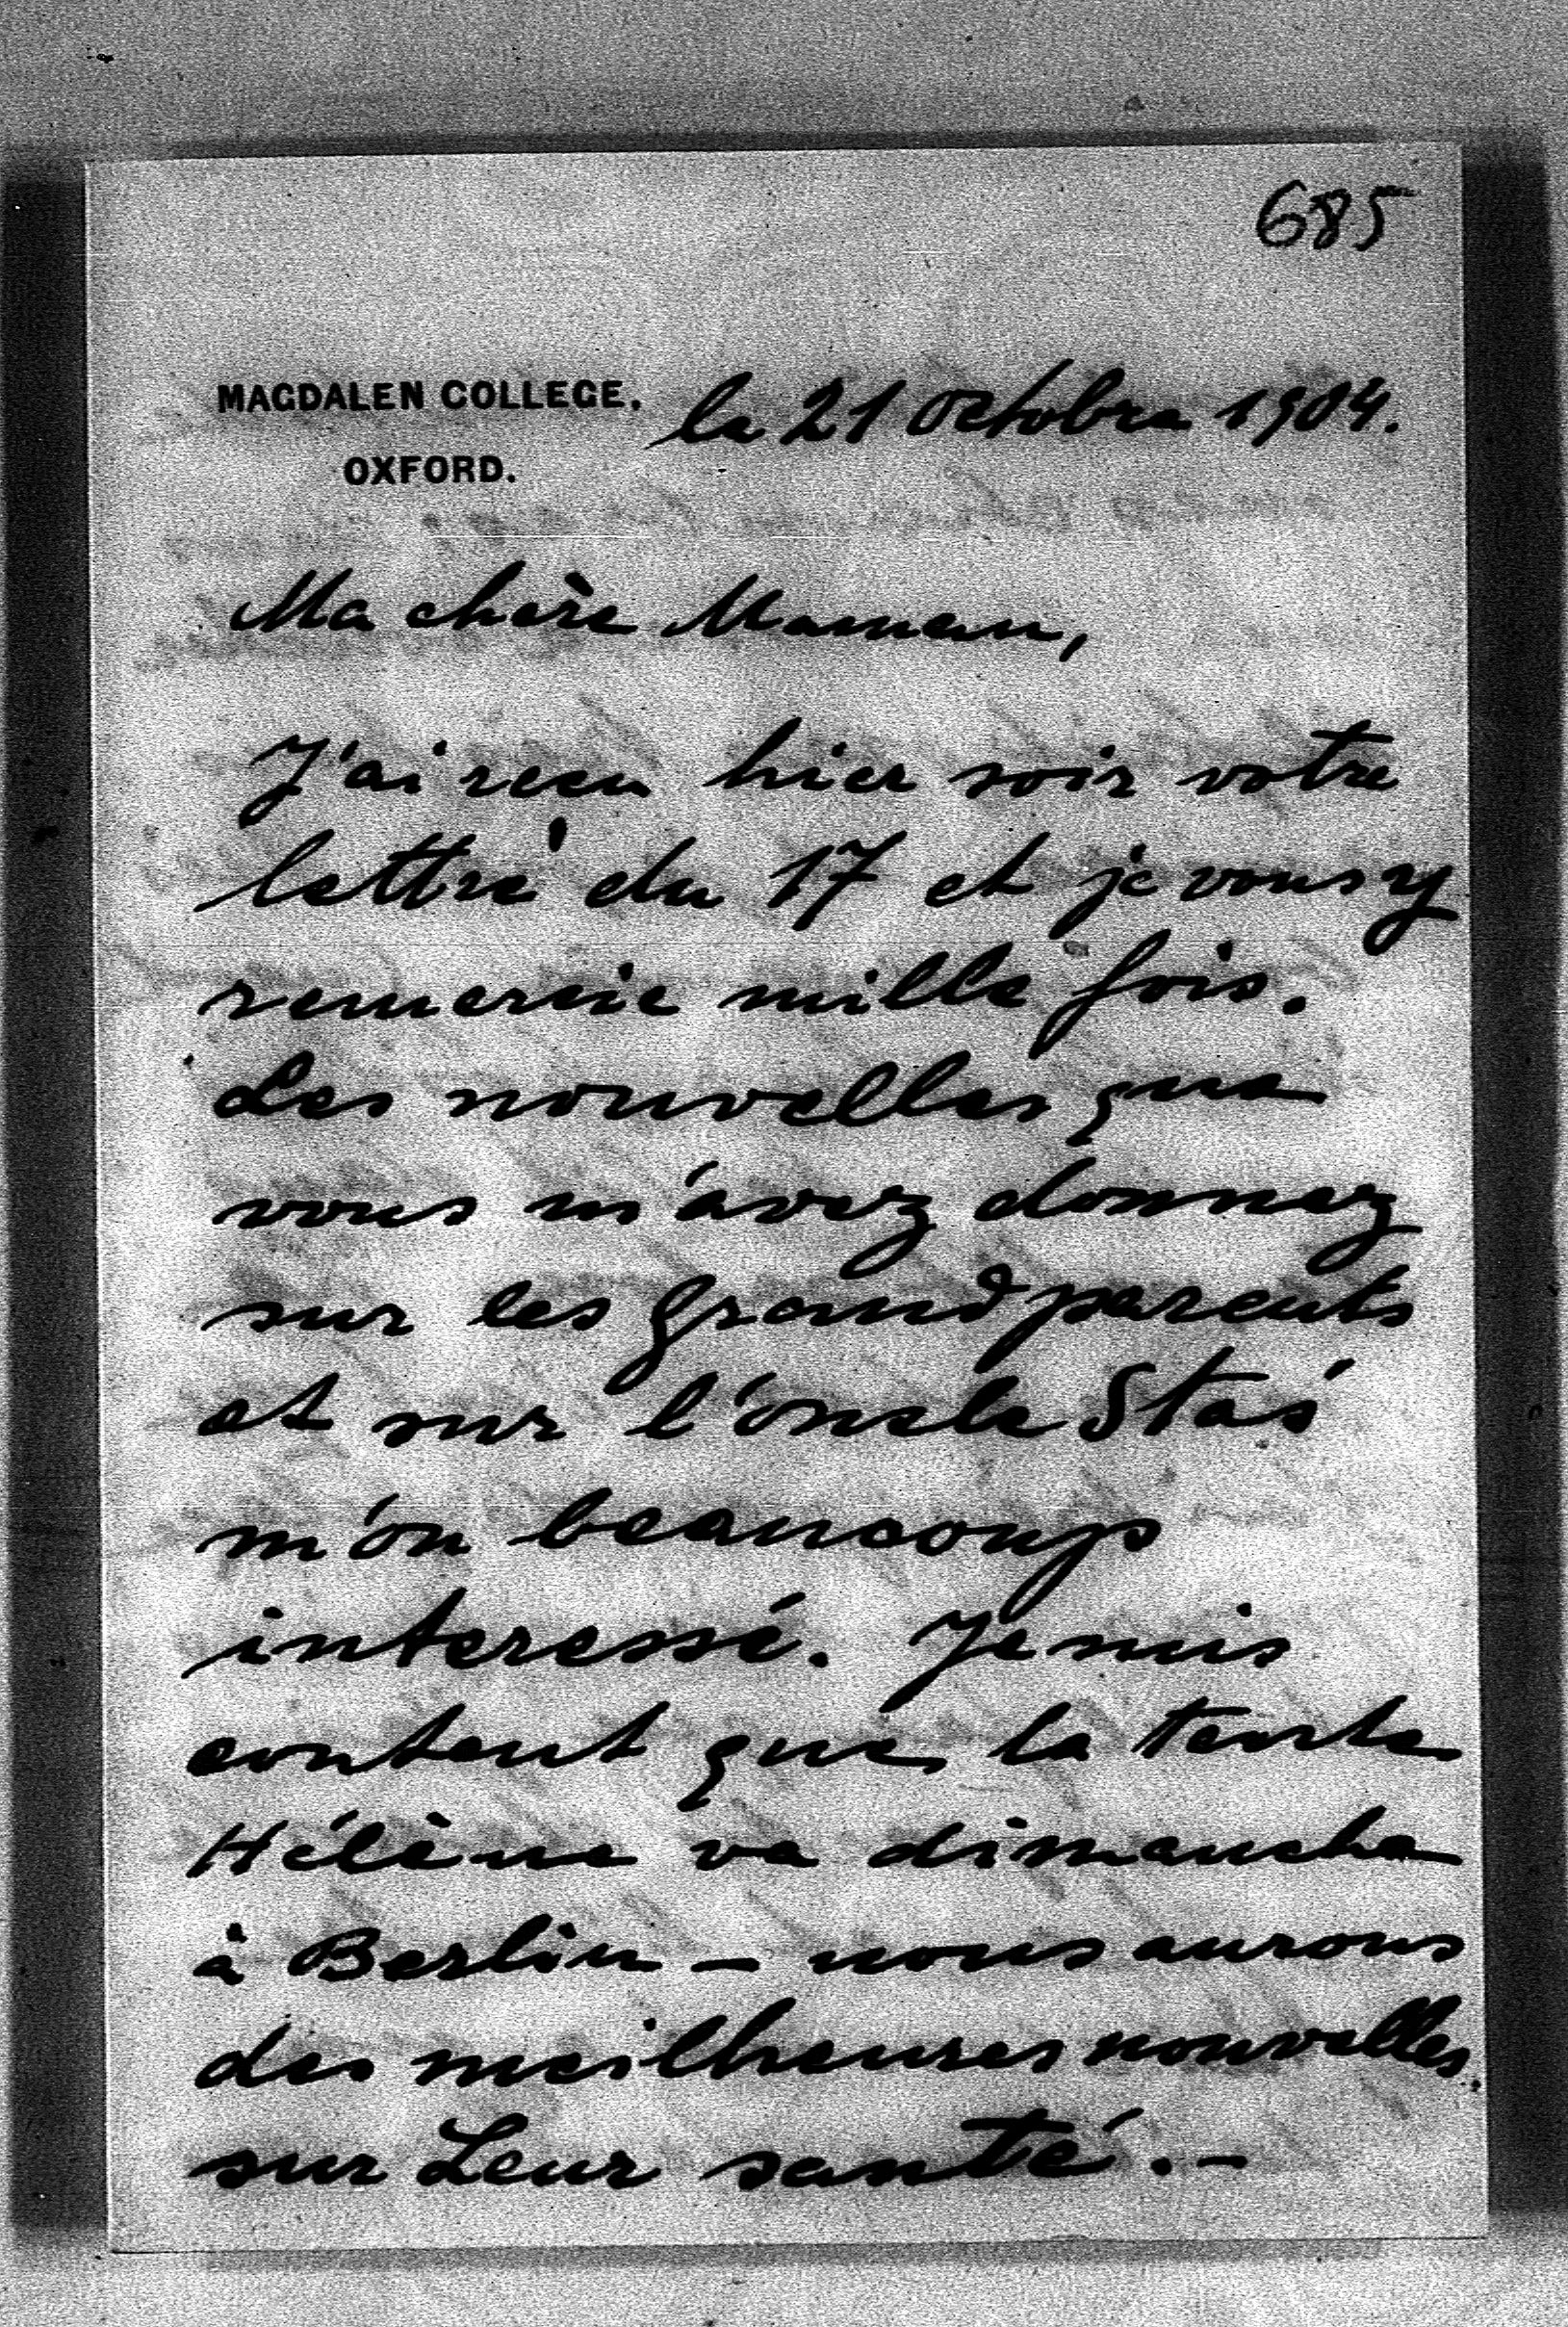 685
MAGDALEN COLLEGE,
OXFORD.
le 21 octobre 1904.
Ma chère Maman,
J'ai reçu hier soir votre
lettre du 17 et je vous y
remercie mille fois.
Les nouvelles que
vous m'avez donnez
sur les grandparents
et sur l'oncle Staś
m'on beaucoup
interessé. Je suis
content que la tante
Hélène va dimanche
à Berlin – nous aurons
des meilheures nouvelles
sur Leur santé. –